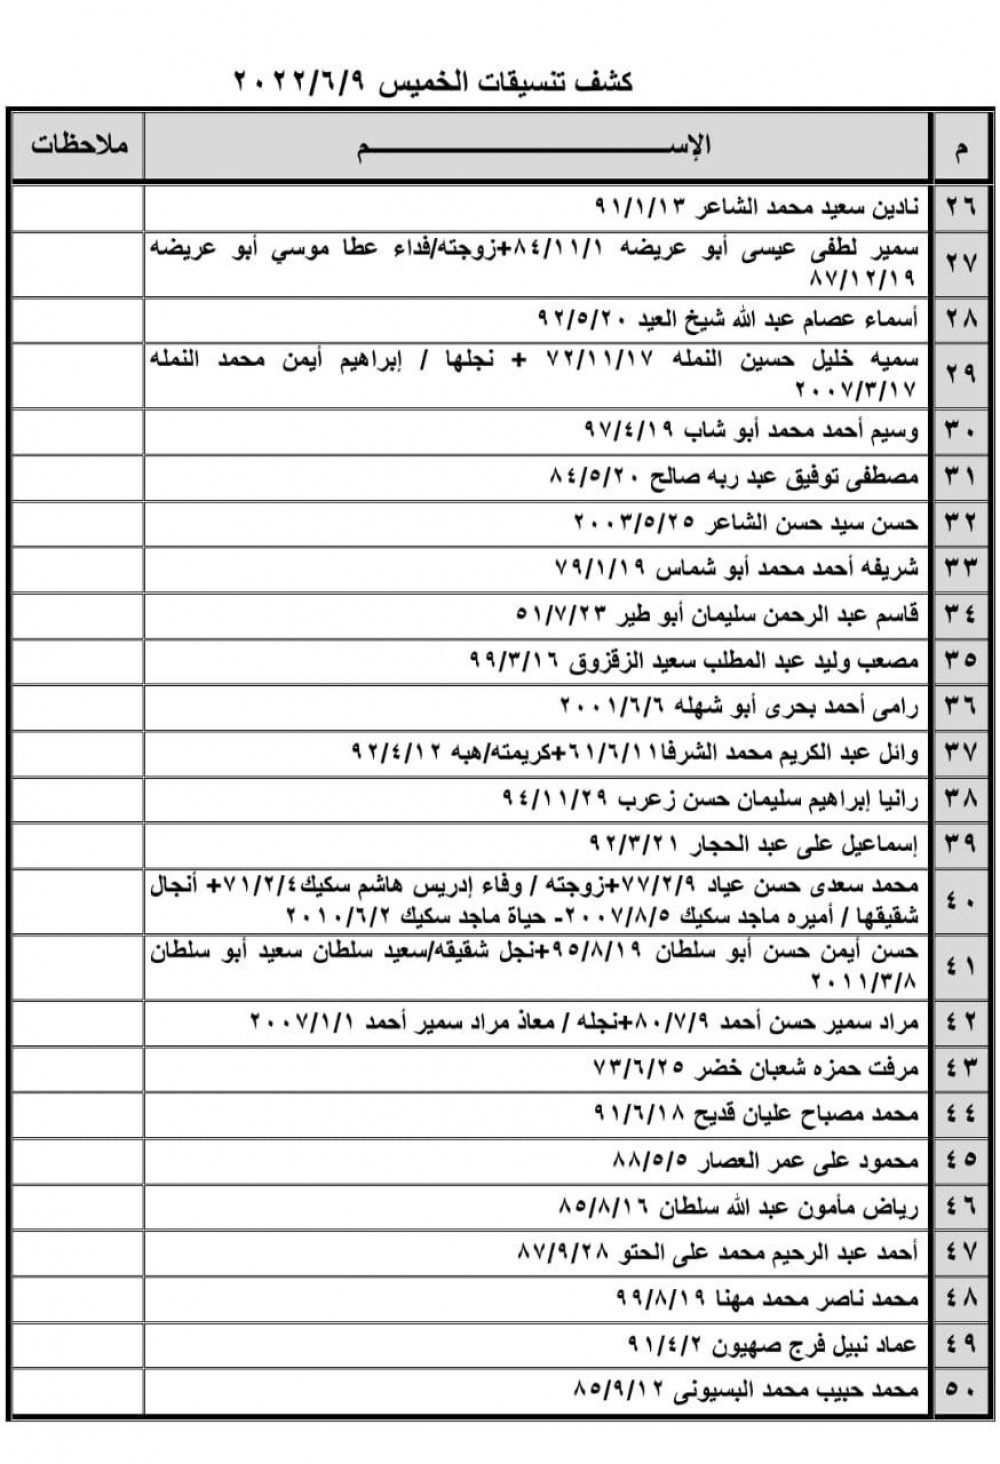 كشف تنسيقات الخميس ٢٠٢٢/٦/٩
م الإســـم ملاحظات
٢٦ نادين سعيد محمد الشاعر ٩١/١/١٣
٢٧ سمير لطفى عيسى أبو عريضه ٨٤/١١/١+زوجته/فداء عطا موسي أبو عريضه
٨٧/١٢/١٩
٢٨ أسماء عصام عبد الله شيخ العيد ٩٢/٥/٢٠
٢٩ سميه خليل حسين النمله ٧٢/١١/١٧ + نجلها / إبراهيم أيمن محمد النمله
٢٠٠٧/٣/١٧
٣٠ وسيم أحمد محمد أبو شاب ٩٧/٤/١٩
٣١ مصطفى توفيق عبد ربه صالح ٨٤/٥/٢٠
٣٢ حسن سيد حسن الشاعر ٢٠٠٣/٥/٢٥
٣٣ شريفه أحمد محمد أبو شماس ٧٩/١/١٩
٣٤ قاسم عبد الرحمن سليمان أبو طير ٥١/٧/٢٣
٣٥ مصعب وليد عبد المطلب سعيد الزقزوق ٩٩/٣/١٦
٣٦ رامى أحمد بحرى أبو شهله ٢٠٠١/٦/٦
٣٧ وائل عبد الكريم محمد الشرفا٦١/٦/١١+كريمته/هبه ٩٢/٤/١٢
٣٨ رانيا إبراهيم سليمان حسن زعرب ٩٤/١١/٢٩
٣٩ إسماعيل على عبد الحجار ٩٢/٣/٢١
٤٠ محمد سعدى حسن عياد ٧٧/٢/٩+زوجته / وفاء إدريس هاشم سكيك٧١/٢/٤+ أنجال
شقيقها / أميره ماجد سكيك ٢٠٠٧/٨/٥- حياة ماجد سكيك ٢٠١٠/٦/٢
٤١ حسن أيمن حسن أبو سلطان ٩٥/٨/١٩+نجل شقيقه/سعيد سلطان سعيد أبو سلطان
٢٠١١/٣/٨
٤٢ مراد سمير حسن أحمد ٨٠/٧/٩+نجله / معاذ مراد سمير أحمد ٢٠٠٧/١/١
٤٣ مرفت حمزه شعبان خضر ٧٣/٦/٢٥
٤٤ محمد مصباح عليان قديح ٩١/٦/١٨
٤٥ محمود على عمر العصار ٨٨/٥/٥
٤٦ رياض مأمون عبد الله سلطان ٨٥/٨/١٦
٤٧ أحمد عبد الرحيم محمد على الحتو ٨٧/٩/٢٨
٤٨ محمد ناصر محمد مهنا ٩٩/٨/١٩
٤٩ عماد نبيل فرج صهيون ٩١/٤/٢
٥٠ محمد حبيب محمد البسيونى ٨٥/٩/١٢